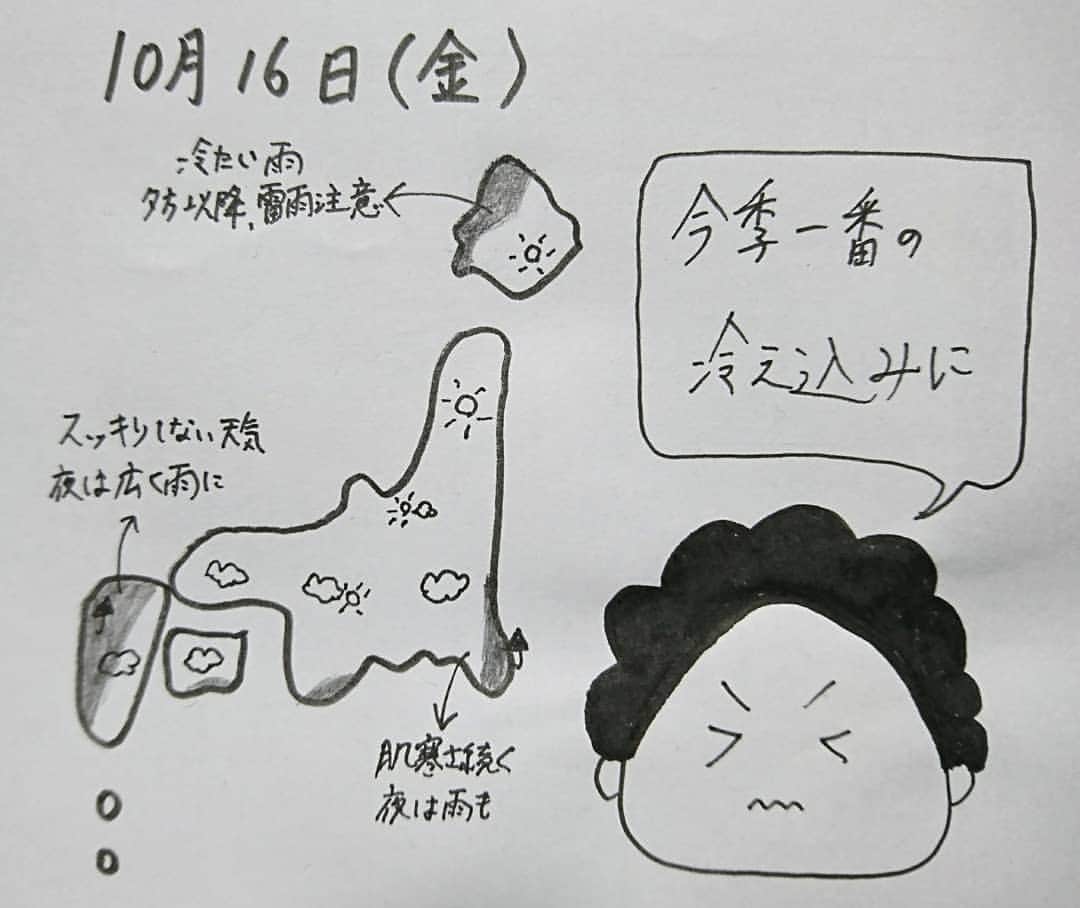 10月16日(金)
冷たい雨
夕方以降、雷雨注意
今季一番の
冷え込みに
スッキリしない天気
夜は広く雨に
肌寒さ続く
夜は雨も